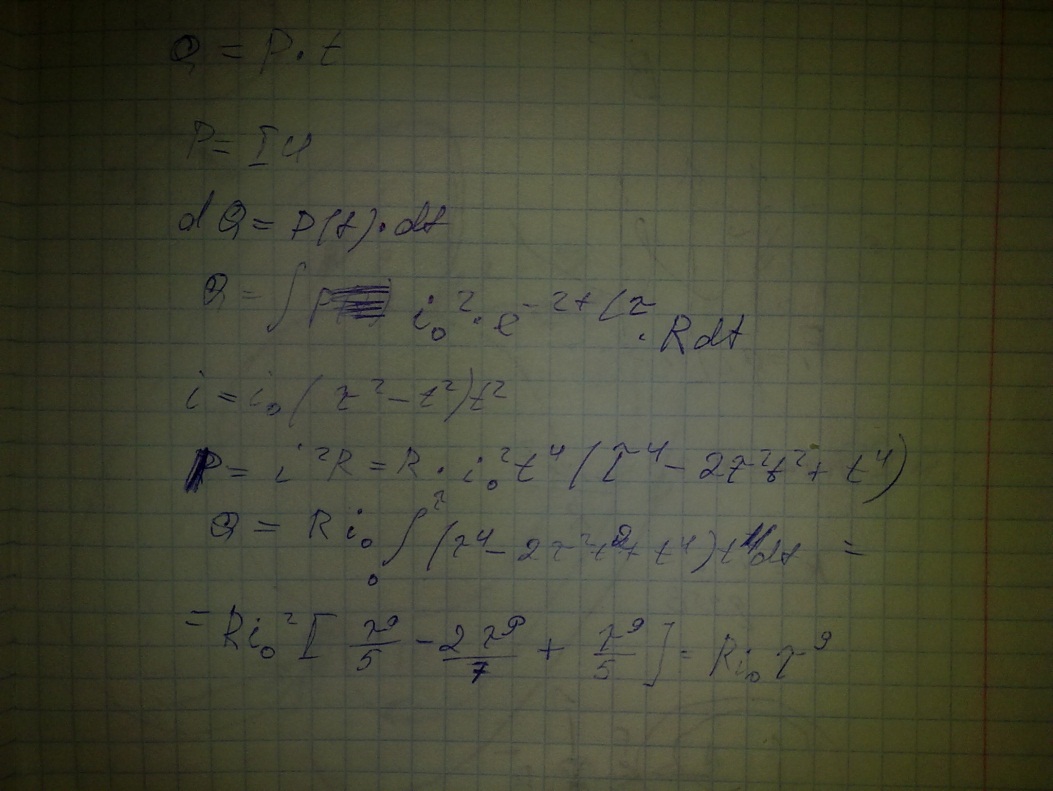 Q = P · t
P = IU
dQ = P(t) · dt
Q = ∫ i₀² · e^(-2t/τ) · R dt
i = i₀ (τ² - t²) t²
P = i²R = R · i₀² t⁴ (τ⁴ - 2τ²t² + t⁴)
Q = R i₀ ∫₀^τ (τ⁴ - 2τ²t² + t⁴) t⁴ dt =
= R i₀² [ τ⁹/5 - 2τ⁹/7 + τ⁹/5 ] = R i₀ τ⁹